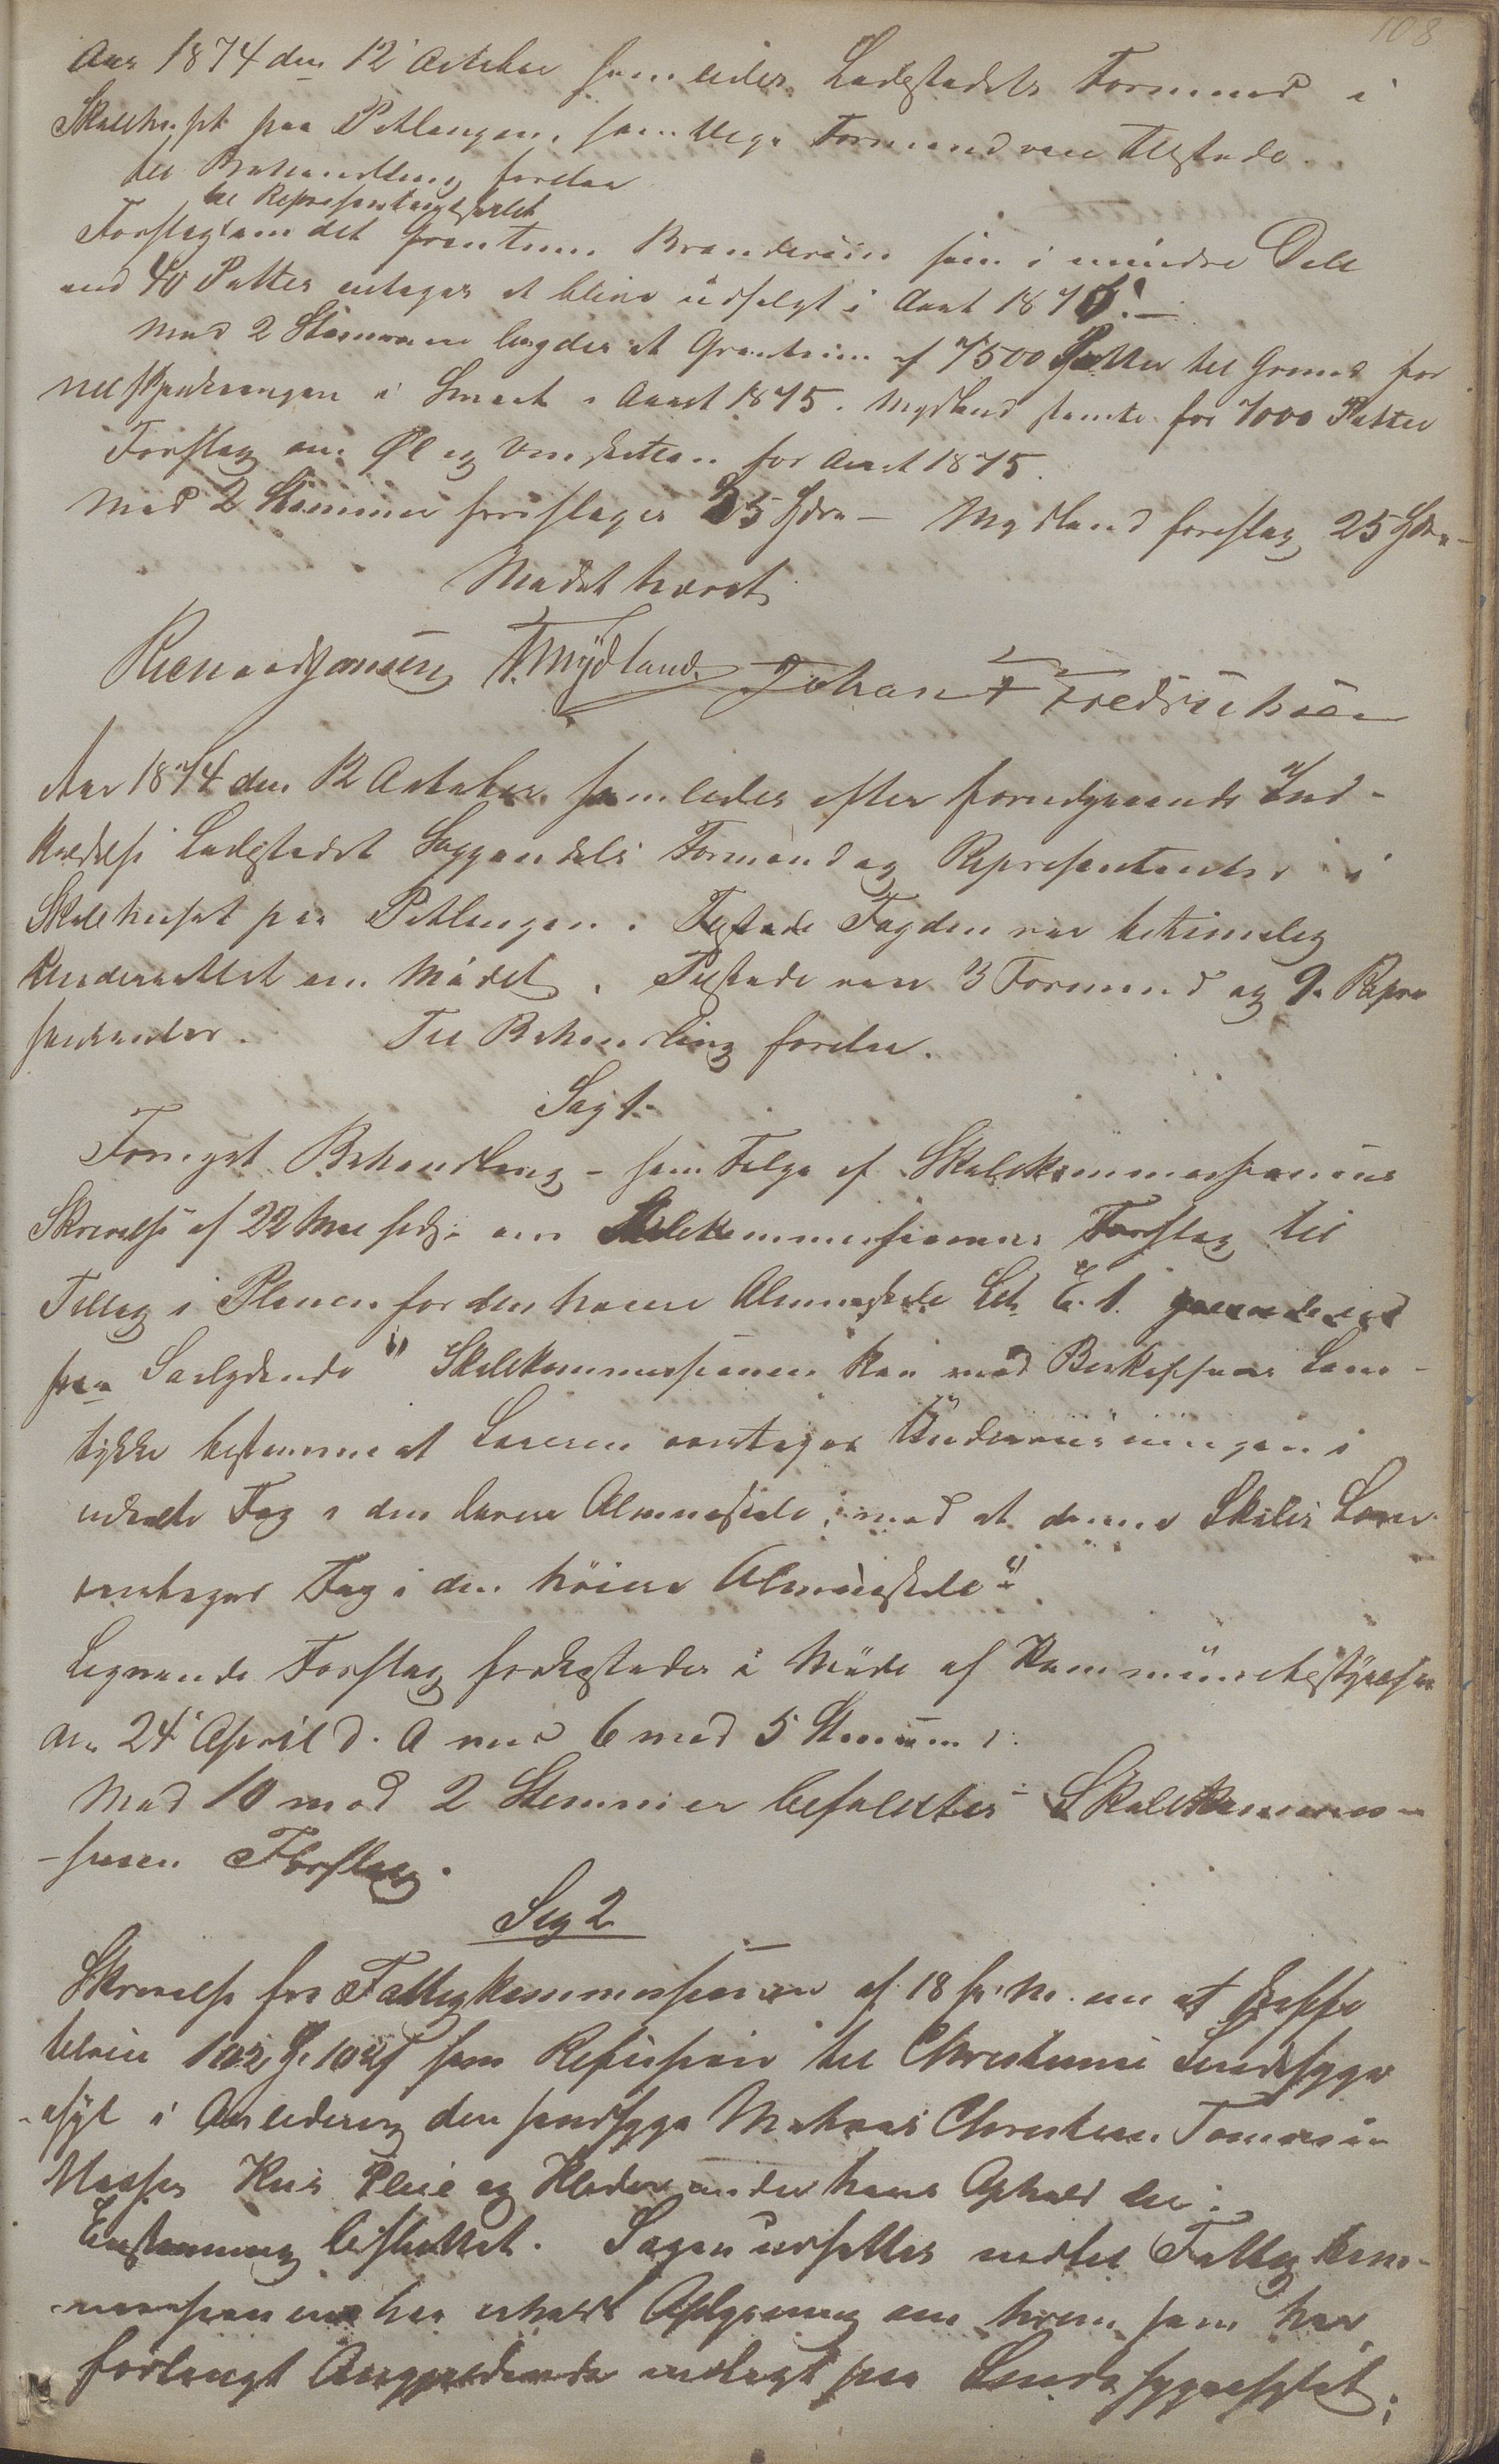 108
Aar 1874 den 12 October samledes Ladestedets Formænd i
Skolehuset paa Pletangen, samtlige Formænd vare tilstede.
til Behandling forelaa
til Representantskabet
Forslag om det Qvantum Brændeviin som i mindre Dele
end 40 Potter antages at blive udsolgt i Aaret 1875.
Med 2 Stemmer bragdes et Qvantum af 7500 Potter til Grund for
i Smaat i Aaret 1875. Mydland stemte for 7000 Potter
Forslag om Øl og Vinskatten for Aaret 1875.
Med 2 Stemmer foreslages 35 Spdr - Mydland foreslog 25 Spdr -
Mødet hævet
Rienardjonsen T. Mydland Johan F Fredriksen
Aar 1874 den 12 October samledes efter foregaaende Ind-
kaldelse Ladestedet Soggendals Formænd og Representanter i
Skolehuset paa Pletangen. Fogden var betimelig
Underrettet om Mødet. Tilstede vare 3 Formænd og 9 Repre
sentanter. Til Behandling forelaa.
Sag 1.
Fornyet Behandling - som Følge af Skolekommissionens
Skrivelse af 22 Mai sidst om Skolekommissionens Forslag til
Tillæg i Planen for den høiere Almueskole Litr E. 1.
saalydende "Skolekommissionen kan med Biskoppens Sam-
tykke bestemme at Læreren overtager Undervisningen i
enkelte Fag i den lavere Almueskole, mod at denne Skoles Lærer
overtager Fag i den høiere Almueskole"
Lignende Forslag forkastedes i Møde af Kommunebestyrelsen
den 24 April d. A med 6 mod 5 Stemmer.
Med 10 mod 2 Stemmer besluttes Skolekommis-
-sionen Forslag.
Sag 2
Skrivelse fra Fattigkommissionen af 18 f. M. om at
102 som Refusion til Christiania Sindssyge
-asyl i Anledning den sindssyge Mathias Christian Tønnesen
Mosses Kur Pleie og Klæder under hans Ophold der.
Enstemmig besluttet. Sagen udsættes indtil Fattigkom-
missionen har erholdt Oplysning om hvem som har
forlangt Angjældende indlagt paa Sindssygeasylet;